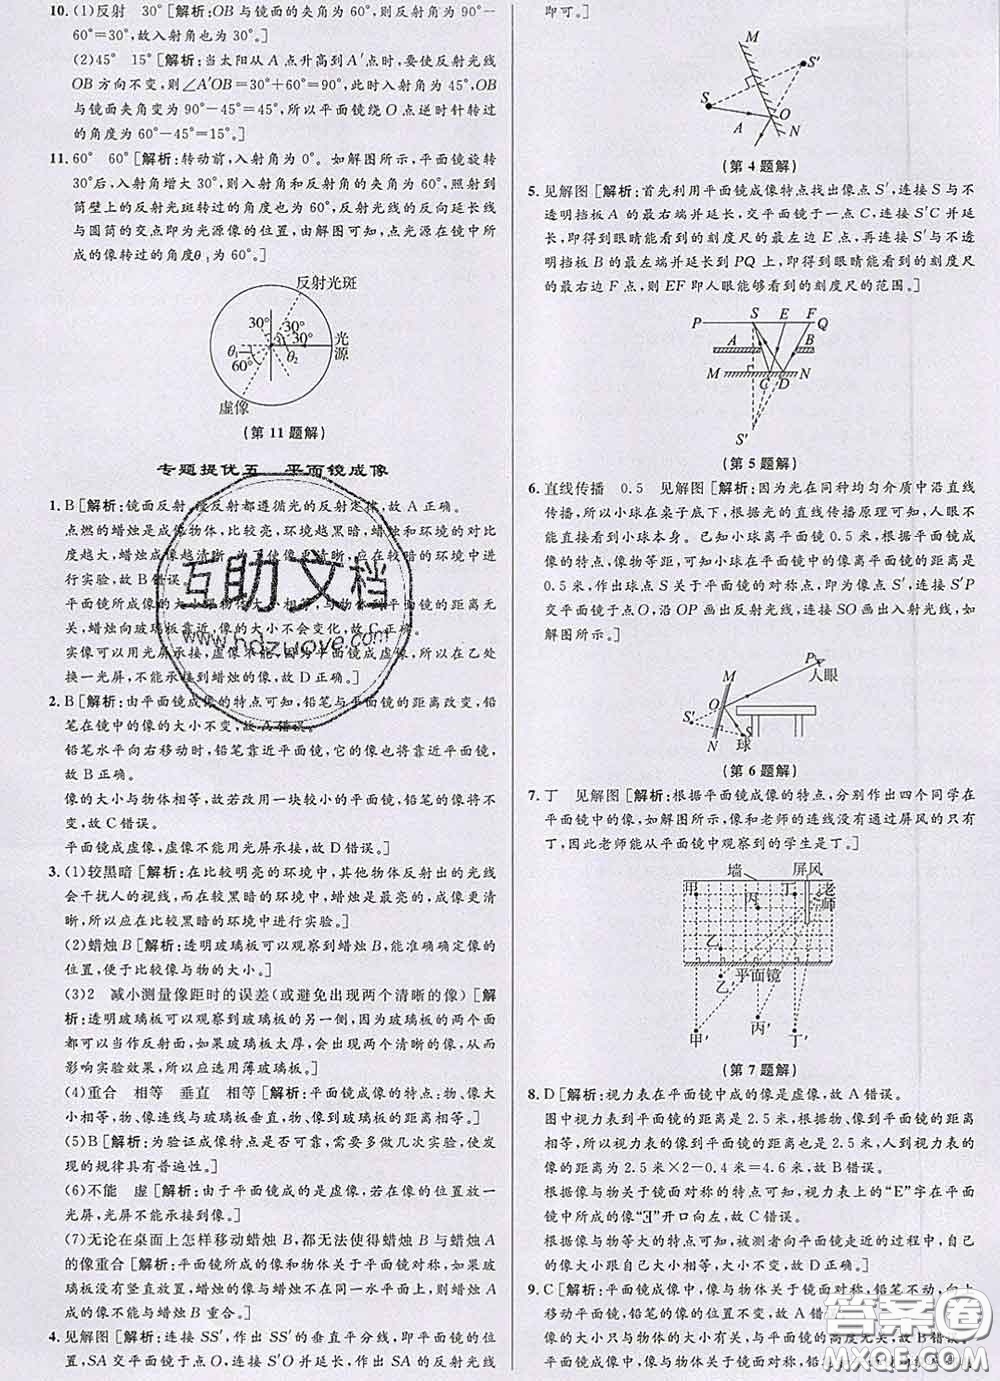 10. (1)反射　30°[解析:OB与镜面的夹角为60°,则反射角为90°−
60°=30°,故入射角也为30°。]
(2)45°　15°[解析:当太阳从A点升高到A′点时,要使反射光线
OB方向不变,则∠A′OB=30°+60°=90°,此时入射角为45°,OB
与镜面夹角变为90°−45°=45°,所以平面镜绕O点逆时针转过
的角度为60°−45°=15°。]
11. 60°　60°[解析:转动前,入射角为0°。如解图所示,平面镜旋转
30°后,入射角增大30°,则入射角和反射角的夹角为60°,照射到
筒壁上的反射光斑转过的角度也为60°,反射光线的反向延长线
与圆筒的交点即为光源像的位置,由解图可知,点光源在镜中所
成的像转过的角度θ₁为60°。]
反射光斑
30°
30°
30°
光源
θ₁
60°
θ₂
虚像
(第11题解)
专题提优五　平面镜成像
1. B[解析:镜面反射、漫反射都遵循光的反射定律,故A正确。
点燃的蜡烛是成像物体,比较亮,环境越黑暗,蜡烛和环境的对比
度越大,蜡烛成像越清晰,为了使像更清晰,应在较暗的环境中进
行实验,故B错误。
平面镜所成像的大小与物体大小相等,与物体到平面镜的距离无
关,蜡烛向玻璃板靠近,像的大小不会变化,故C正确。
实像可以用光屏承接,虚像不能,因为平面镜成虚像,所以在乙处
换一光屏,不能承接到蜡烛的像,故D正确。]
2. B[解析:由平面镜成像的特点可知,铅笔与平面镜的距离改变,铅
笔在镜中的像的大小不变,故A错误。
铅笔水平向右移动时,铅笔靠近平面镜,它的像也将靠近平面镜,
故B正确。
像的大小与物体相等,故若改用一块较小的平面镜,铅笔的像将不
变,故C错误。
平面镜成虚像,虚像不能用光屏承接,故D错误。]
3. (1)较黑暗[解析:在比较明亮的环境中,其他物体反射出的光线
会干扰人的视线,而在较黑暗的环境中,蜡烛是最亮的,成像更清
晰,所以应在比较黑暗的环境中进行实验。]
(2)蜡烛B[解析:透明玻璃板可以观察到蜡烛B,能准确确定像的
位置,便于比较像与物的大小。]
(3)2　减小测量像距时的误差(或避免出现两个清晰的像)[解
析:透明玻璃板可以观察到玻璃板的另一侧,因为玻璃板的两个面
都可以当作反射面,如果玻璃板太厚,会出现两个清晰的像,从而
影响实验效果,所以应选用薄玻璃板。]
(4)重合　相等　垂直　相等[解析:平面镜成像的特点:物、像大
小相等,物、像连线与玻璃板垂直,物、像到玻璃板的距离相等。]
(5)B[解析:为验证成像特点是否可靠,需要多做几次实验,使发
现的规律具有普遍性。]
(6)不能　虚[解析:由于平面镜成的是虚像,若在像的位置放一
光屏,光屏不能承接到像。]
(7)无论在桌面上怎样移动蜡烛B,都无法使得蜡烛B与蜡烛A
的像重合[解析:平面镜所成的像和物体关于平面镜对称,如果玻
璃板没有竖直放置,蜡烛的像与蜡烛不在同一水平面上,则蜡烛A
成的像不能与蜡烛B重合。]
4. 见解图[解析:连接SS′,作出SS′的垂直平分线,即平面镜的位
置,SA交平面镜于点O,连接S′O并延长,作出SA的反射光线
即可。
M
S′
S
O
A
N
(第4题解)
5. 见解图[解析:首先利用平面镜成像特点找出像点S′,连接S与不
透明挡板A的最右端并延长,交平面镜于一点C,连接S′C并延
长,即得到眼睛能看到的刻度尺的最左边E点,再连接S′与不透
明挡板B的最右端并延长到PQ上,即得到眼睛能看到的刻度尺
的最右边F点,则EF即人眼能够看到的刻度尺的范围。]
P
S E F
Q
A
B
M
C D
N
S′
(第5题解)
6. 直线传播　0.5　见解图[解析:因为光在同种均匀介质中沿直线
传播,所以小球在桌子底下,根据光的直线传播原理可知,人眼不
能直接看到小球本身。已知小球离平面镜0.5米,根据平面镜成
像的特点,像物等距,可知小球在平面镜中的像离平面镜的距离是
0.5米,作出球点S关于平面镜的对称点,即为像点S′,连接S′P
交平面镜于点O,沿OP画出反射光线,连接SO画出入射光线,如
解图所示。]
P
人眼
M
O
S′
S
N
球
(第6题解)
7. 丁　见解图[解析:根据平面镜成像的特点,分别作出四个同学在
平面镜中的像,如解图所示,像和老师的连线没有通过屏风的只有
丁,因此老师能从平面镜中观察到的学生是丁。]
墙
屏风
甲
丙
丁
老师
乙
平面镜
乙′
甲′
丙′
丁′
(第7题解)
8. D[解析:视力表在平面镜中成的像是虚像,故A错误。
图中视力表到平面镜的距离是2.5米,根据物、像到平面镜的距离
相等,所以视力表的像到平面镜的距离也是2.5米,人到视力表的
像的距离为2.5米×2−0.4米=4.6米,故B错误。
根据像与物关于镜面对称的特点可知,视力表上的“E”字在平面
镜中所成的像“Ǝ”开口向左,故C错误。
根据像与物等大的特点可知,被测者向平面镜走近的过程中,自己
的像大小跟自己本身大小相等,像的大小不变,故D正确。]
9. C[解析:平面镜成像中,像与物体关于镜面对称,铅笔不动,向上
移动平面镜,铅笔的像的位置不变,故A错误。
像的大小只与物体的大小有关,与平面镜的高度无关,故B错误。
平面镜成像中,像与物体关于镜面对称,
互助文档
www.hdzuoye.com
答案圈
MXQE.COM